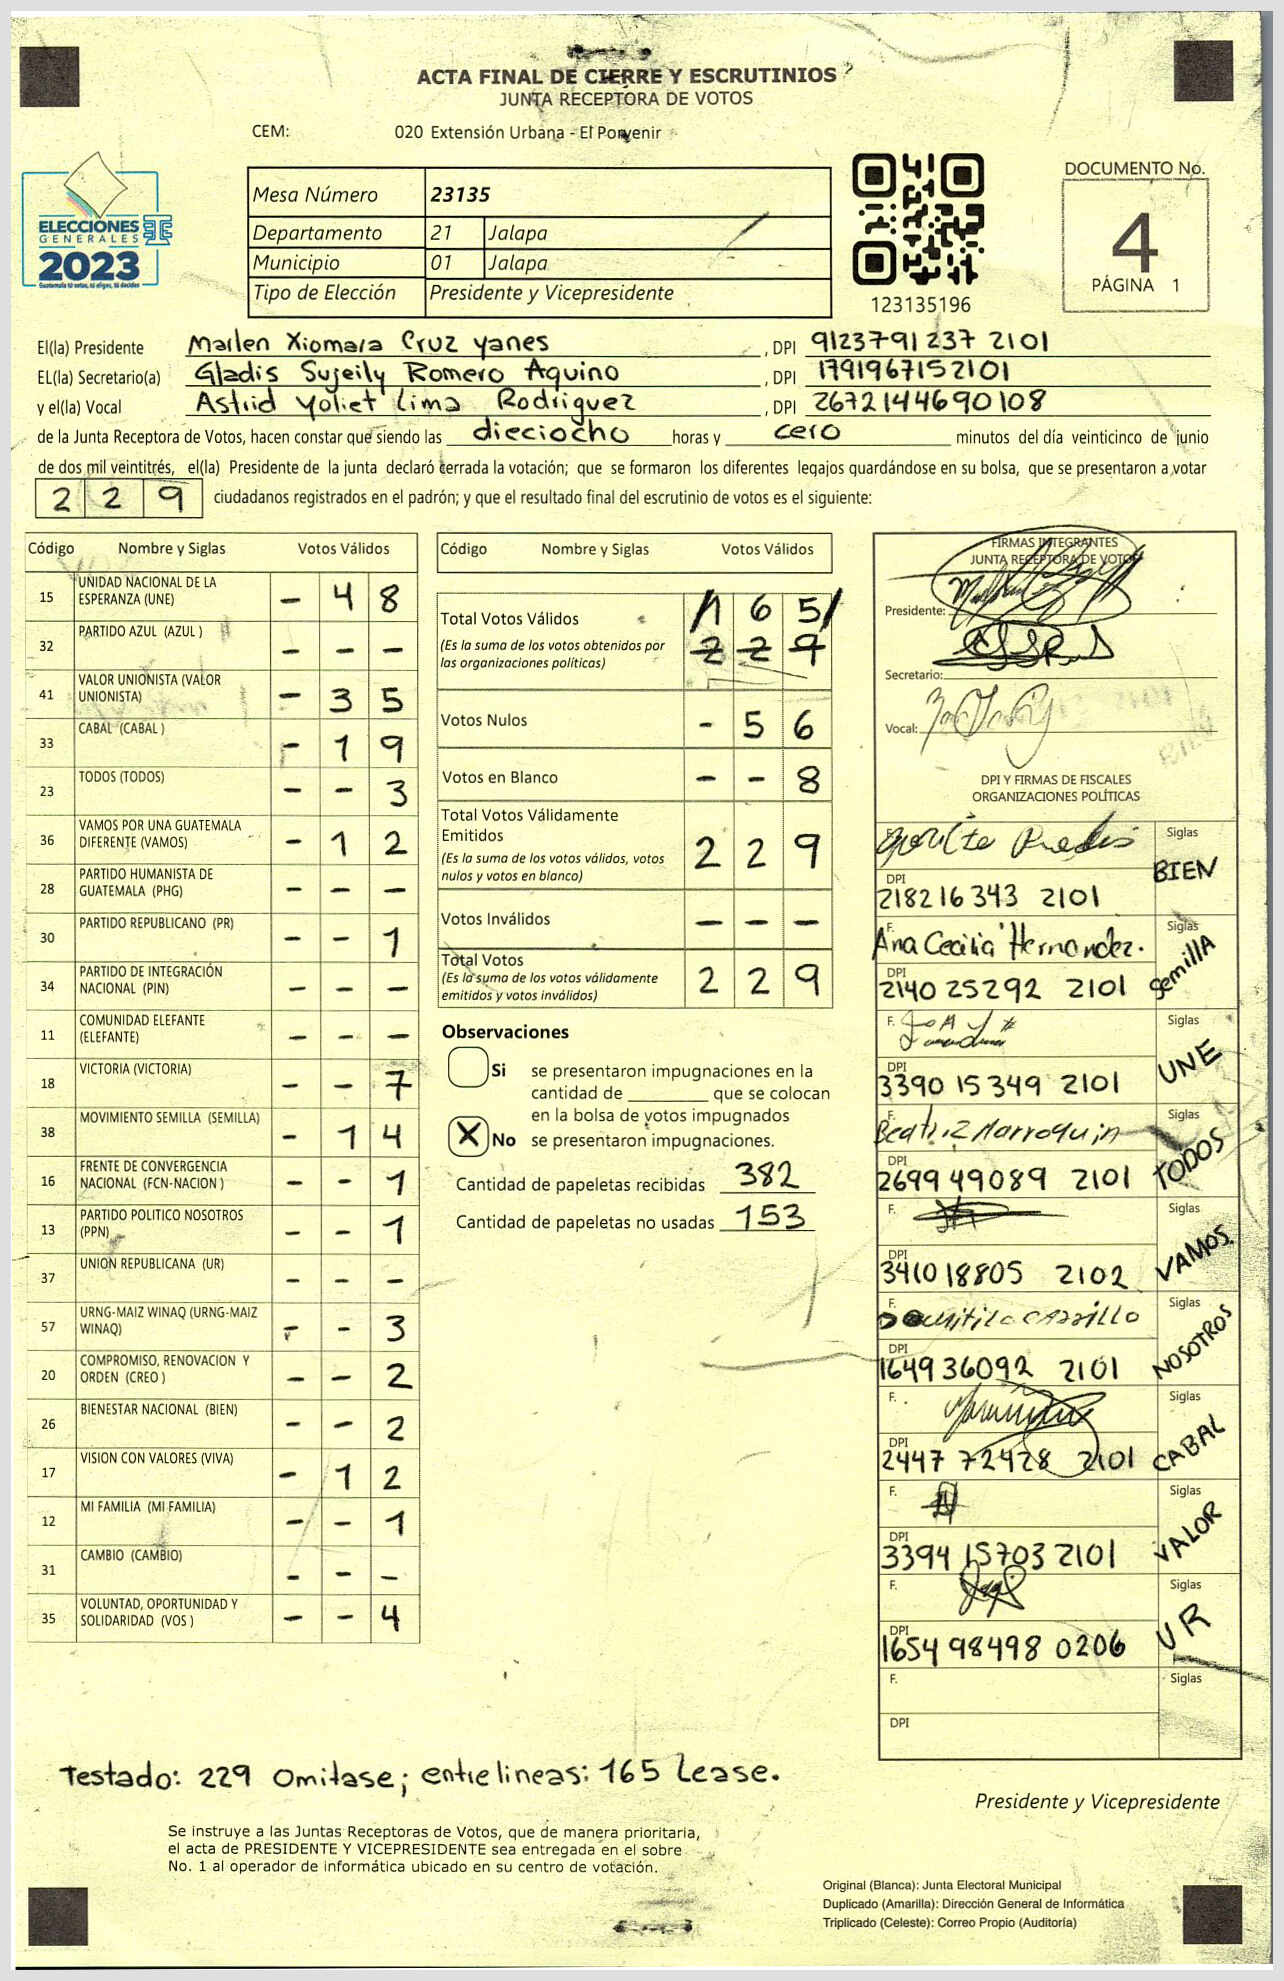 ACTA FINAL DE CIERRE Y ESCRUTINIOS
JUNTA RECEPTORA DE VOTOS
CEM: 020 Extensión Urbana - El Porvenir
ELECCIONES
GENERALES
2023
Guatemala tú votas, tú eliges, tú decides
Mesa Número 23135
Departamento 21 Jalapa
Municipio 01 Jalapa
Tipo de Elección Presidente y Vicepresidente
123135196
DOCUMENTO No.
4
PÁGINA 1
El(la) Presidente Marlen Xiomara Cruz yanes , DPI 9123791237 2101
EL(la) Secretario(a) Gladis Sujeily Romero Aquino , DPI 1791967152101
y el(la) Vocal Astrid Yoliet Lima Rodriguez , DPI 2672144690108
de la Junta Receptora de Votos, hacen constar que siendo las dieciocho horas y cero minutos del día veinticinco de junio
de dos mil veintitrés, el(la) Presidente de la junta declaró cerrada la votación; que se formaron los diferentes legajos guardándose en su bolsa, que se presentaron a votar
229 ciudadanos registrados en el padrón; y que el resultado final del escrutinio de votos es el siguiente:
Código Nombre y Siglas Votos Válidos
15 UNIDAD NACIONAL DE LA ESPERANZA (UNE) - 4 8
32 PARTIDO AZUL (AZUL ) - - -
41 VALOR UNIONISTA (VALOR UNIONISTA) - 3 5
33 CABAL (CABAL ) - 1 9
23 TODOS (TODOS) - - 3
36 VAMOS POR UNA GUATEMALA DIFERENTE (VAMOS) - 1 2
28 PARTIDO HUMANISTA DE GUATEMALA (PHG) - - -
30 PARTIDO REPUBLICANO (PR) - - 1
34 PARTIDO DE INTEGRACIÓN NACIONAL (PIN) - - -
11 COMUNIDAD ELEFANTE (ELEFANTE) - - -
18 VICTORIA (VICTORIA) - - 7
38 MOVIMIENTO SEMILLA (SEMILLA) - 1 4
16 FRENTE DE CONVERGENCIA NACIONAL (FCN-NACION ) - - 1
13 PARTIDO POLITICO NOSOTROS (PPN) - - 1
37 UNION REPUBLICANA (UR) - - -
57 URNG-MAIZ WINAQ (URNG-MAIZ WINAQ) - - 3
20 COMPROMISO, RENOVACION Y ORDEN (CREO ) - - 2
26 BIENESTAR NACIONAL (BIEN) - - 2
17 VISION CON VALORES (VIVA) - 1 2
12 MI FAMILIA (MI FAMILIA) - - 1
31 CAMBIO (CAMBIO) - - -
35 VOLUNTAD, OPORTUNIDAD Y SOLIDARIDAD (VOS ) - - 4
Código Nombre y Siglas Votos Válidos
Total Votos Válidos /1 6 5/
(Es la suma de los votos obtenidos por las organizaciones políticas) 2 2 9
Votos Nulos - 5 6
Votos en Blanco - - 8
Total Votos Válidamente Emitidos
(Es la suma de los votos válidos, votos nulos y votos en blanco) 2 2 9
Votos Inválidos - - -
Total Votos
(Es la suma de los votos válidamente emitidos y votos inválidos) 2 2 9
Observaciones
Si se presentaron impugnaciones en la
cantidad de ________ que se colocan
en la bolsa de votos impugnados
X No se presentaron impugnaciones.
Cantidad de papeletas recibidas 382
Cantidad de papeletas no usadas 153
FIRMAS INTEGRANTES
JUNTA RECEPTORA DE VOTOS
Presidente:
Secretario:
Vocal:
DPI Y FIRMAS DE FISCALES
ORGANIZACIONES POLÍTICAS
Siglas BIEN
DPI 218216343 2101
F. Ana Cecilia Hernandez. Siglas Semilla
DPI 2140 25292 2101
F. Siglas UNE
DPI 3390 15349 2101
F. Beatriz Marroquin Siglas TODOS
DPI 2699 49089 2101
F. Siglas VAMOS.
DPI 3410 18805 2102
F. Siglas NOSOTROS
DPI 1649 36092 2101
F. Siglas CABAL
DPI 2447 72428 2101
F. Siglas VALOR
DPI 3394 15703 2101
F. Siglas UR
DPI 1654 98498 0206
F. Siglas
DPI
Testado: 229 Omitase; entre lineas: 165 Lease.
Presidente y Vicepresidente
Se instruye a las Juntas Receptoras de Votos, que de manera prioritaria,
el acta de PRESIDENTE Y VICEPRESIDENTE sea entregada en el sobre
No. 1 al operador de informática ubicado en su centro de votación.
Original (Blanca): Junta Electoral Municipal
Duplicado (Amarilla): Dirección General de Informática
Triplicado (Celeste): Correo Propio (Auditoría)